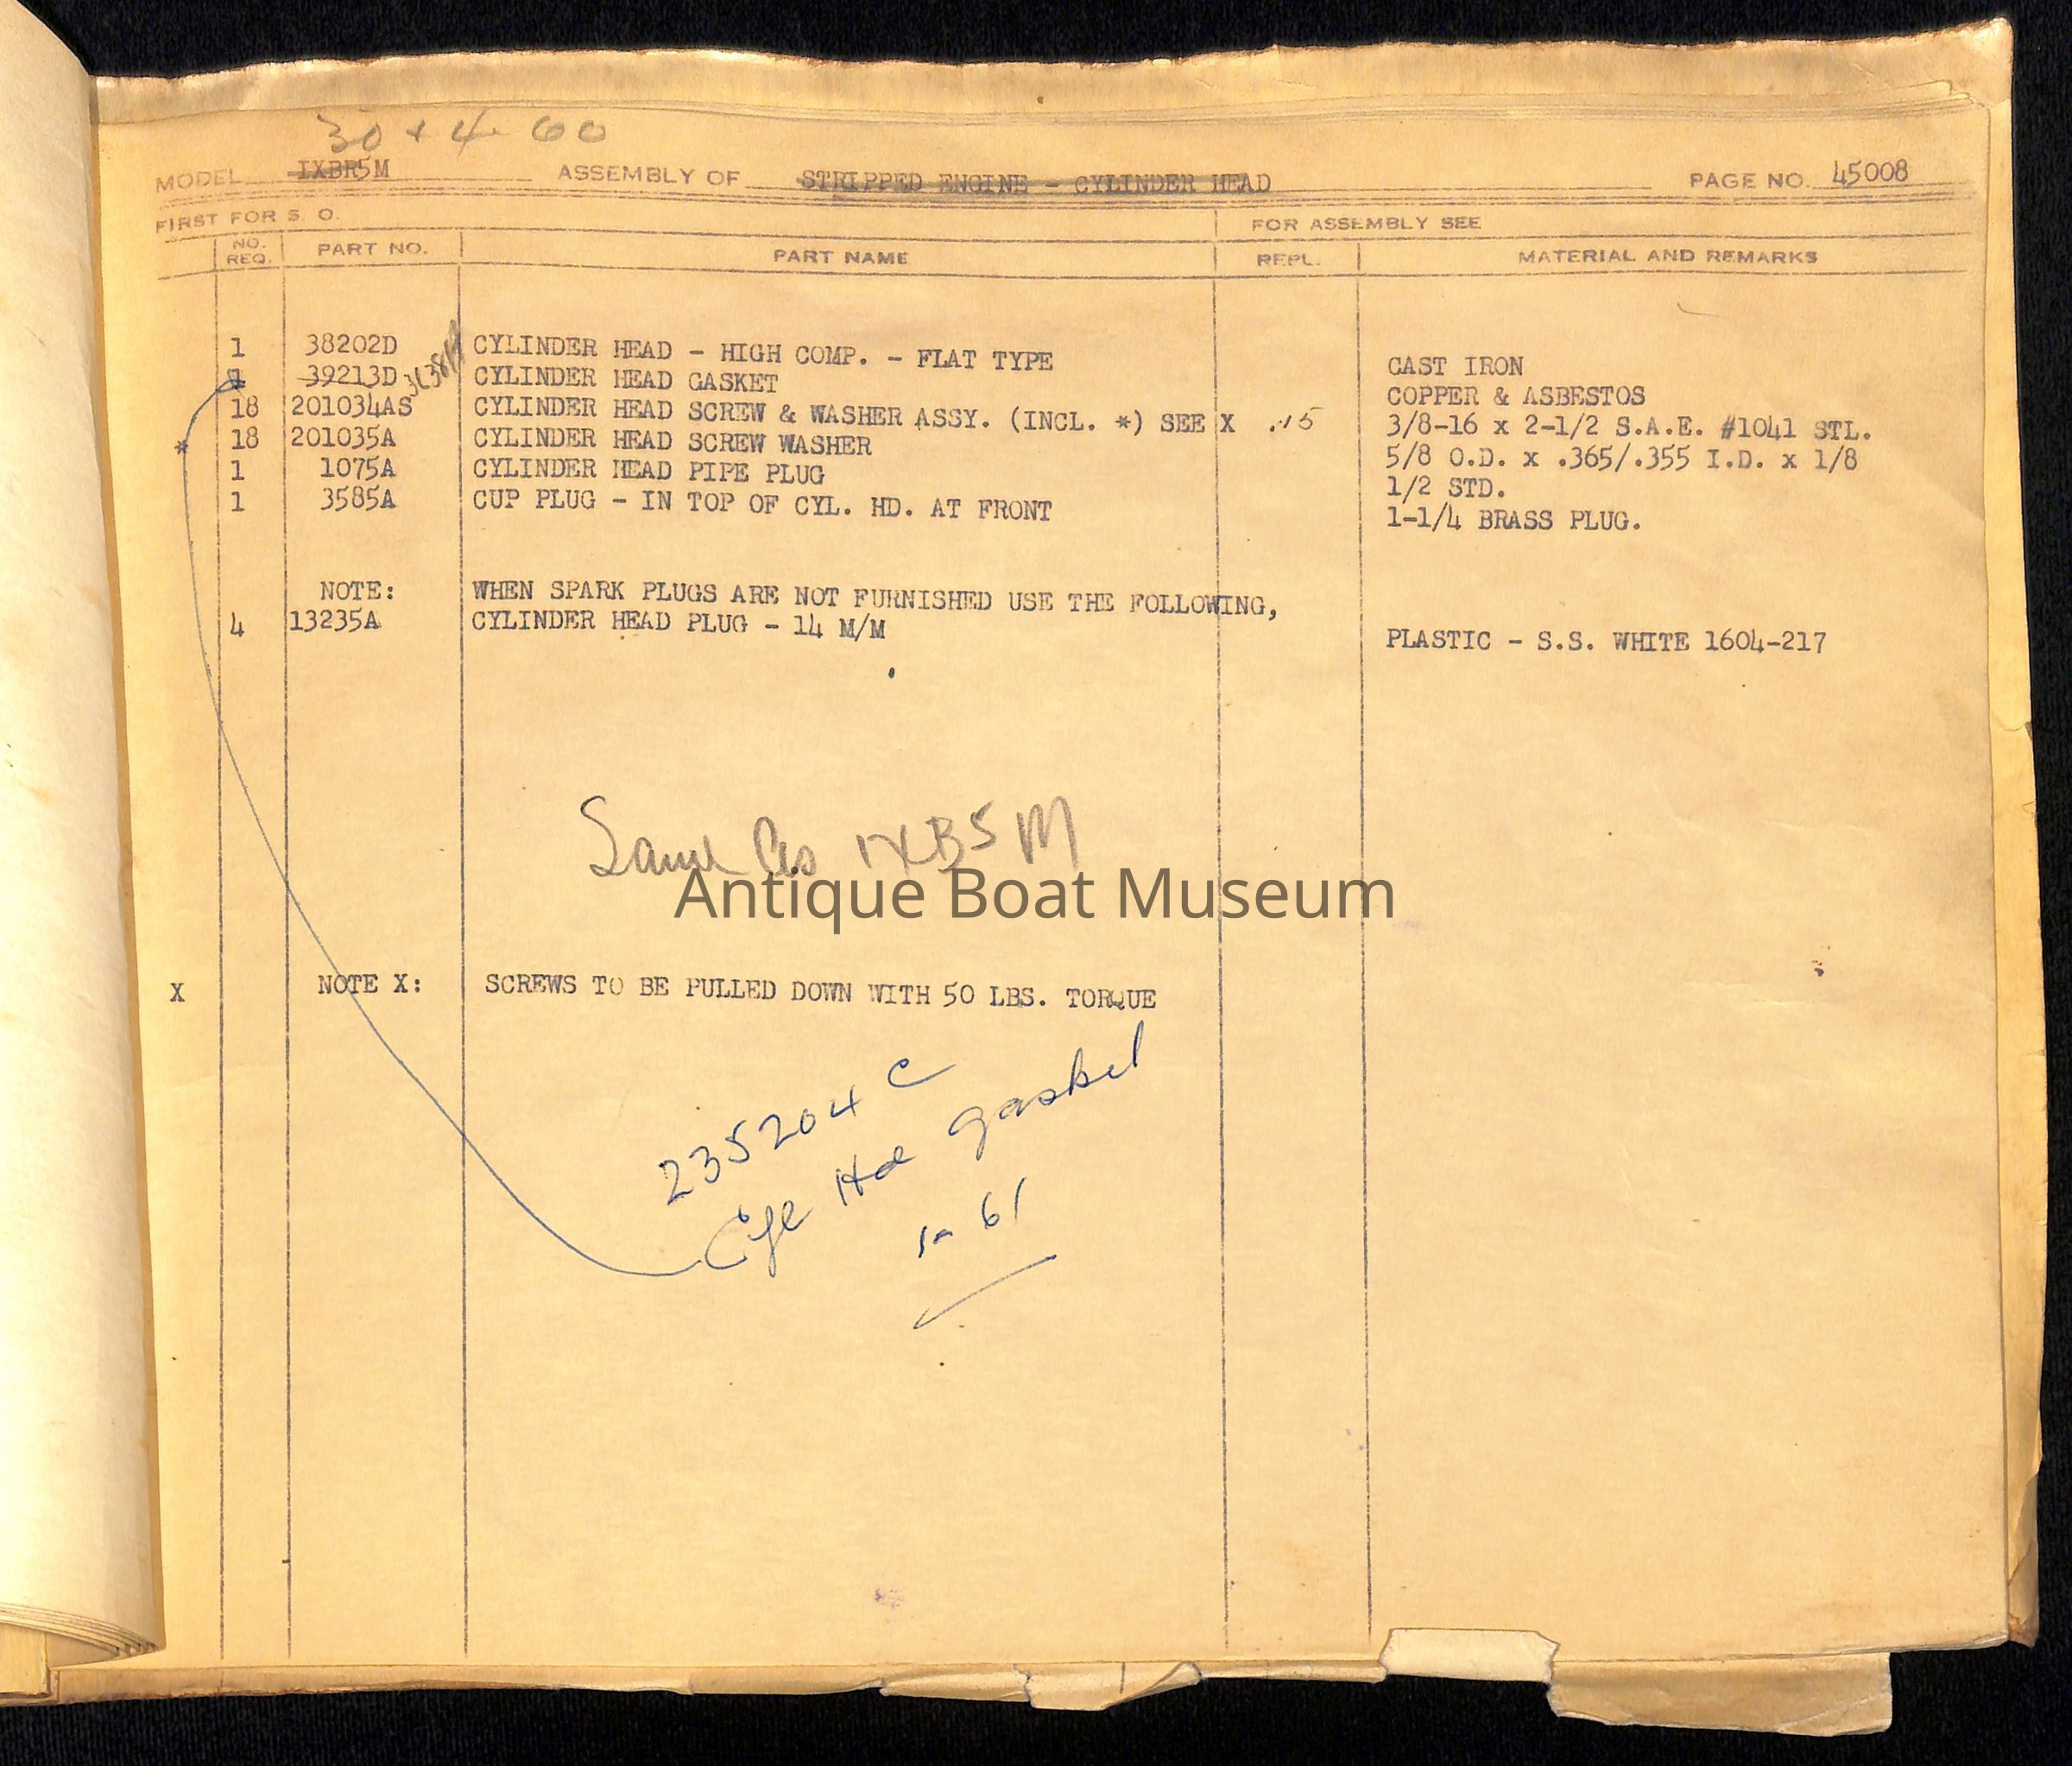 30 + 4-60
MODEL IXBR5M ASSEMBLY OF STRIPPED ENGINE - CYLINDER HEAD PAGE NO. 45008
FIRST FOR S. O. FOR ASSEMBLY SEE
NO. REQ. PART NO. PART NAME REPL. MATERIAL AND REMARKS
1 38202D CYLINDER HEAD - HIGH COMP. - FLAT TYPE CAST IRON
1 39213D CYLINDER HEAD GASKET COPPER & ASBESTOS
18 201034AS CYLINDER HEAD SCREW & WASHER ASSY. (INCL. *) SEE X .15 3/8-16 x 2-1/2 S.A.E. #1041 STL.
* 18 201035A CYLINDER HEAD SCREW WASHER 5/8 O.D. x .365/.355 I.D. x 1/8
1 1075A CYLINDER HEAD PIPE PLUG 1/2 STD.
1 3585A CUP PLUG - IN TOP OF CYL. HD. AT FRONT 1-1/4 BRASS PLUG.
NOTE: WHEN SPARK PLUGS ARE NOT FURNISHED USE THE FOLLOWING,
4 13235A CYLINDER HEAD PLUG - 14 M/M PLASTIC - S.S. WHITE 1604-217
Same As IXB5M
Antique Boat Museum
X NOTE X: SCREWS TO BE PULLED DOWN WITH 50 LBS. TORQUE
235204 C
Cyl Hd gasket
in 61